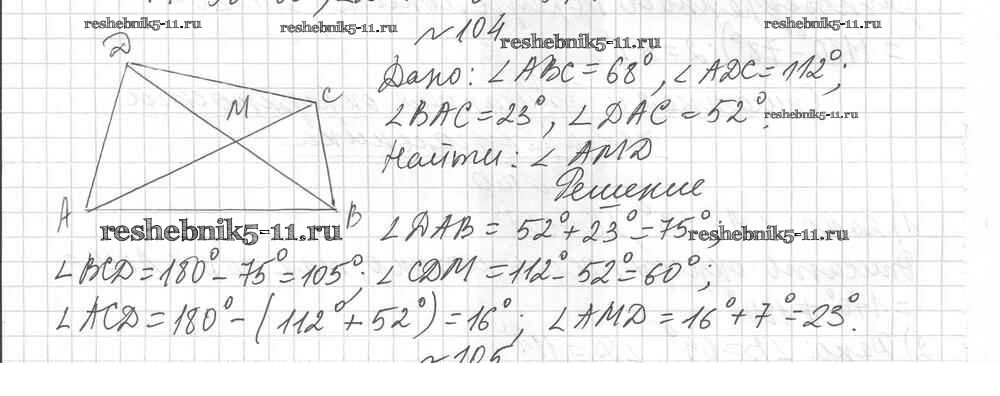 reshebnik5-11.ru reshebnik5-11.ru reshebnik5-11.ru
№104
reshebnik5-11.ru
D
Дано: ∠ABC = 68°, ∠ADC = 112°;
M C
∠BAC = 23°, ∠DAC = 52°.
reshebnik5-11.ru
Найти: ∠AMD
Решение
A B
reshebnik5-11.ru
∠DAB = 52° + 23° = 75°;
reshebnik5-11.ru
∠BCD = 180° - 75° = 105°; ∠CDM = 112° - 52° = 60°;
∠ACD = 180° - (112° + 52°) = 16°; ∠AMD = 16° + 7° = 23°.
№105